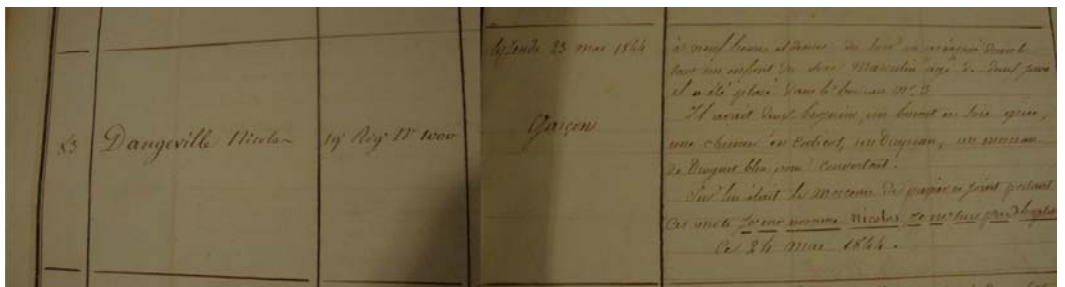 83
Dangeville Nicolas
19e Reg. No 1000
23 mai 1844
Garçon
à neuf heures et demie du soir on a reçu dans le
tour un enfant du sexe Masculin âgé de deux jours
il a été placé dans le berceau No 3
Il avait deux béguins, un bonnet en soie grise,
une chemise en , un , un morceau
de droguet bleu pour couverture.
Sur lui était le morceau de papier ci joint portant
Ces mots Je me nomme Nicolas Je ne suis pas baptisé
Ce 24 mai 1844.